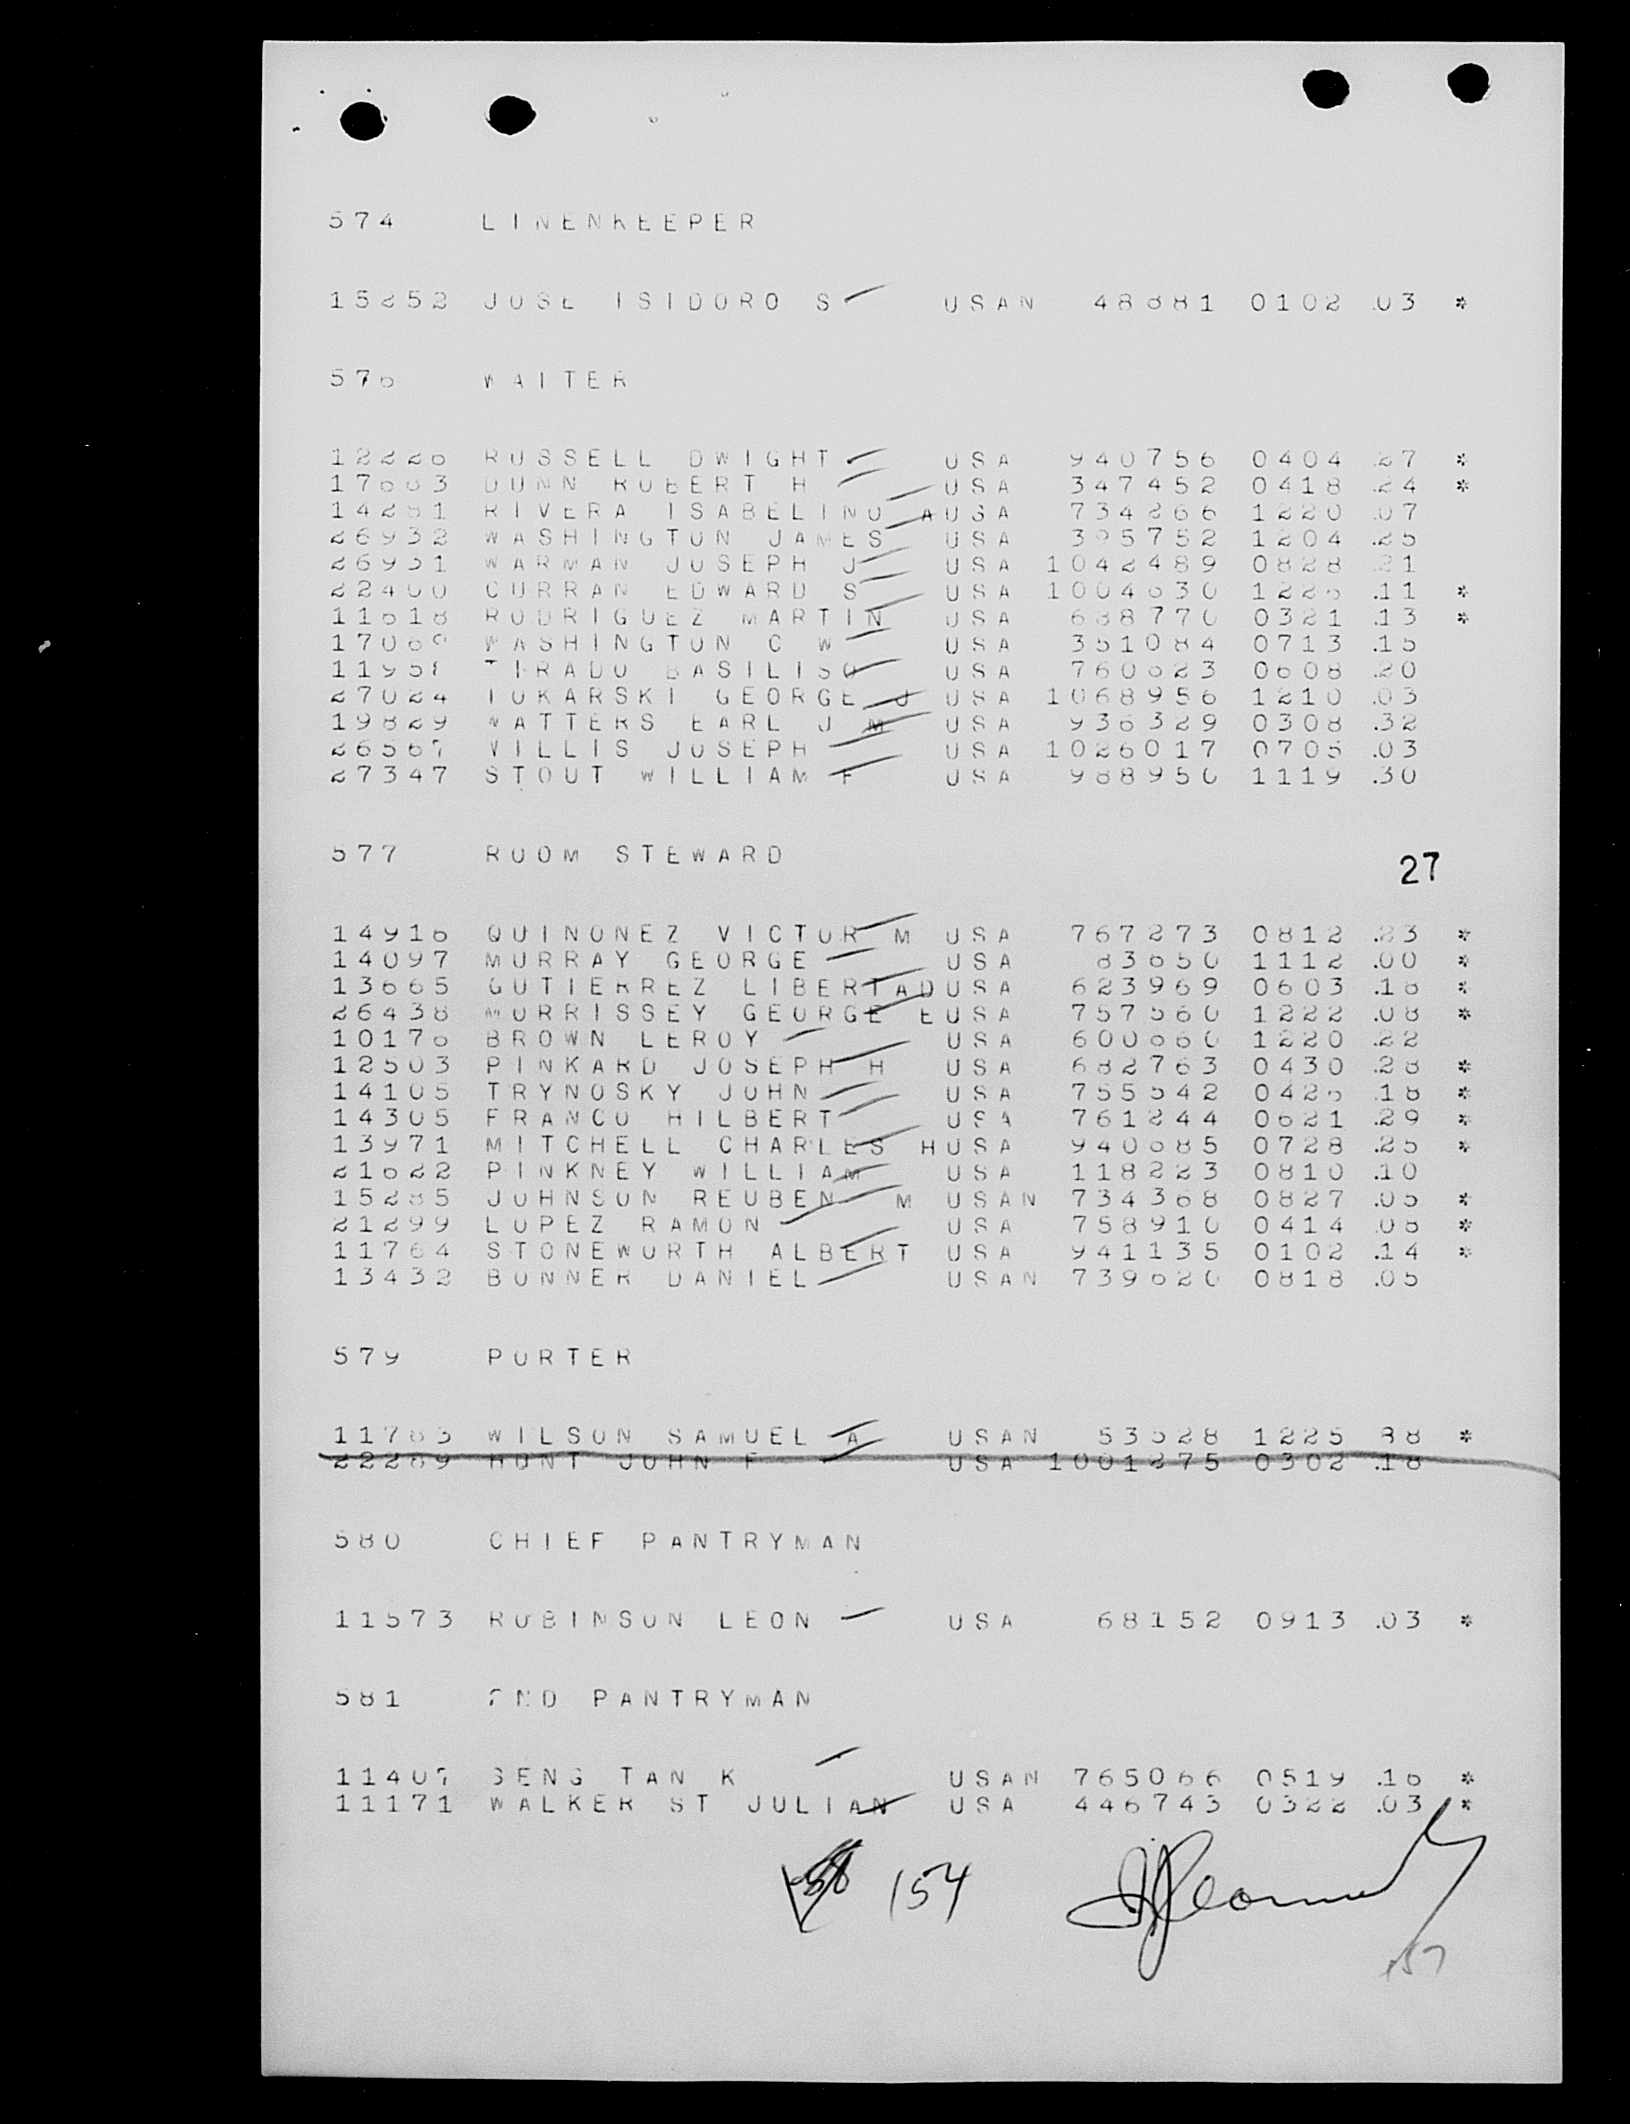 574 LINENKEEPER
15252 JOSE ISIDORO S USAN 48881 0102 .03 *
576 WAITER
12226 RUSSELL DWIGHT USA 940756 0404 .27 *
17603 DUNN ROBERT H USA 347452 0418 .24 *
14281 RIVERA ISABELINO AUSA 734266 1220 .07
26932 WASHINGTON JAMES USA 395752 1204 .25
26951 WARMAN JOSEPH J USA 1042489 0828 .21
22400 CURRAN EDWARD S USA 1004630 1226 .11 *
11618 RODRIGUEZ MARTIN USA 688770 0321 .13 *
17069 WASHINGTON C W USA 351084 0713 .15
11958 TIRADO BASILISO USA 760623 0608 .20
27024 TOKARSKI GEORGE J USA 1068956 1210 .03
19829 WATTERS EARL J M USA 936329 0308 .32
26567 WILLIS JOSEPH USA 1026017 0705 .03
27347 STOUT WILLIAM F USA 988950 1119 .30
577 ROOM STEWARD
27
14916 QUINONEZ VICTOR M USA 767273 0812 .23 *
14097 MURRAY GEORGE USA 83650 1112 .00 *
13665 GUTIERREZ LIBERTADUSA 623969 0603 .18 *
26438 MORRISSEY GEORGE EUSA 757560 1222 .08 *
10176 BROWN LEROY USA 600660 1220 .22
12503 PINKARD JOSEPH H USA 682763 0430 .28 *
14105 TRYNOSKY JOHN USA 755542 0426 .18 *
14305 FRANCO HILBERT USA 761244 0621 .29 *
13971 MITCHELL CHARLES HUSA 940685 0728 .25 *
21622 PINKNEY WILLIAM USA 118223 0810 .10
15285 JOHNSON REUBEN M USAN 734368 0827 .05 *
21299 LOPEZ RAMON USA 758910 0414 .08 *
11764 STONEWORTH ALBERT USA 941135 0102 .14 *
13432 BONNER DANIEL USAN 739620 0818 .05
579 PORTER
11783 WILSON SAMUEL A USAN 53528 1225 38 *
22289 HUNT JOHN F USA 1001275 0302 .18
580 CHIEF PANTRYMAN
11573 ROBINSON LEON USA 68152 0913 .03 *
581 2ND PANTRYMAN
11407 SENG TAN K USAN 765066 0519 .16 *
11171 WALKER ST JULIAN USA 446743 0322 .03 *
154
157